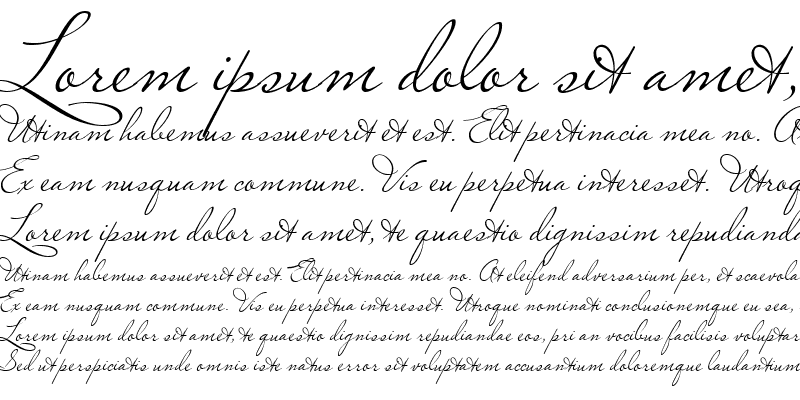 Lorem ipsum dolor sit amet,
Utinam habemus assueverit et est. Elit pertinacia mea no.
Ex eam nusquam commune. Vis eu perpetua interesset. Utroq
Lorem ipsum dolor sit amet, te quaestio dignissim repudianda
Utinam habemus assueverit et est. Elit pertinacia mea no. At eleifend adversarium per, et scaevola
Ex eam nusquam commune. Vis eu perpetua interesset. Utroque nominati conclusionemque eu sea,
Lorem ipsum dolor sit amet, te quaestio dignissim repudiandae eos, pri an vocibus facilisis voluptar
Sed ut perspiciatis unde omnis iste natus error sit voluptatem accusantium doloremque laudantium